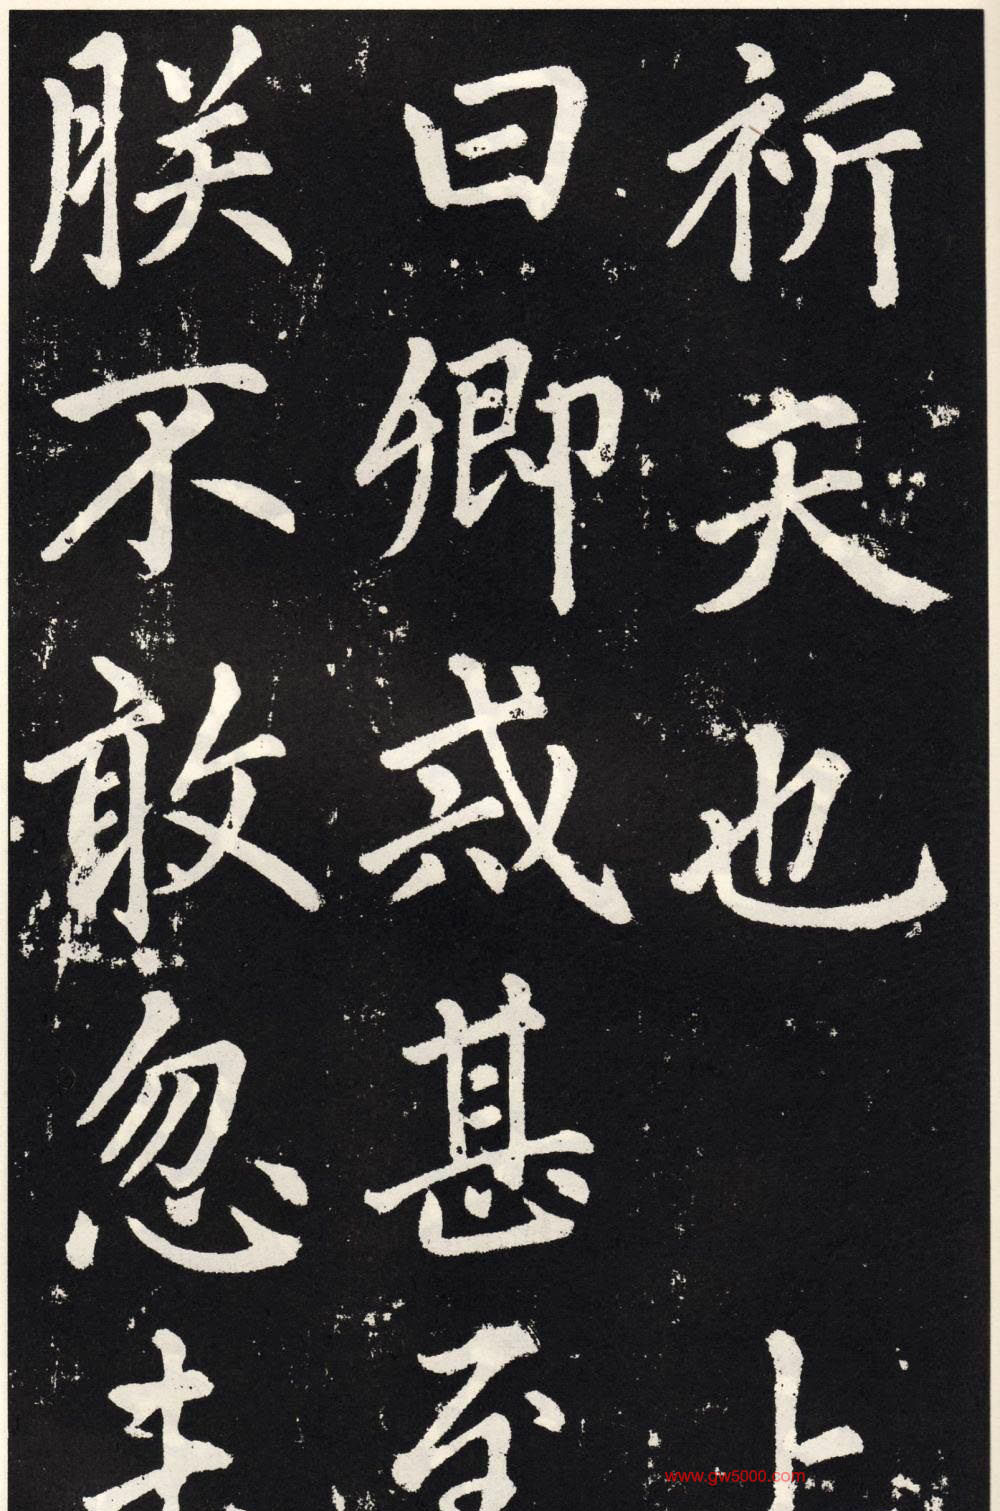 祈天也上
曰卿戒甚至
朕不敢忽
www.gw5000.com